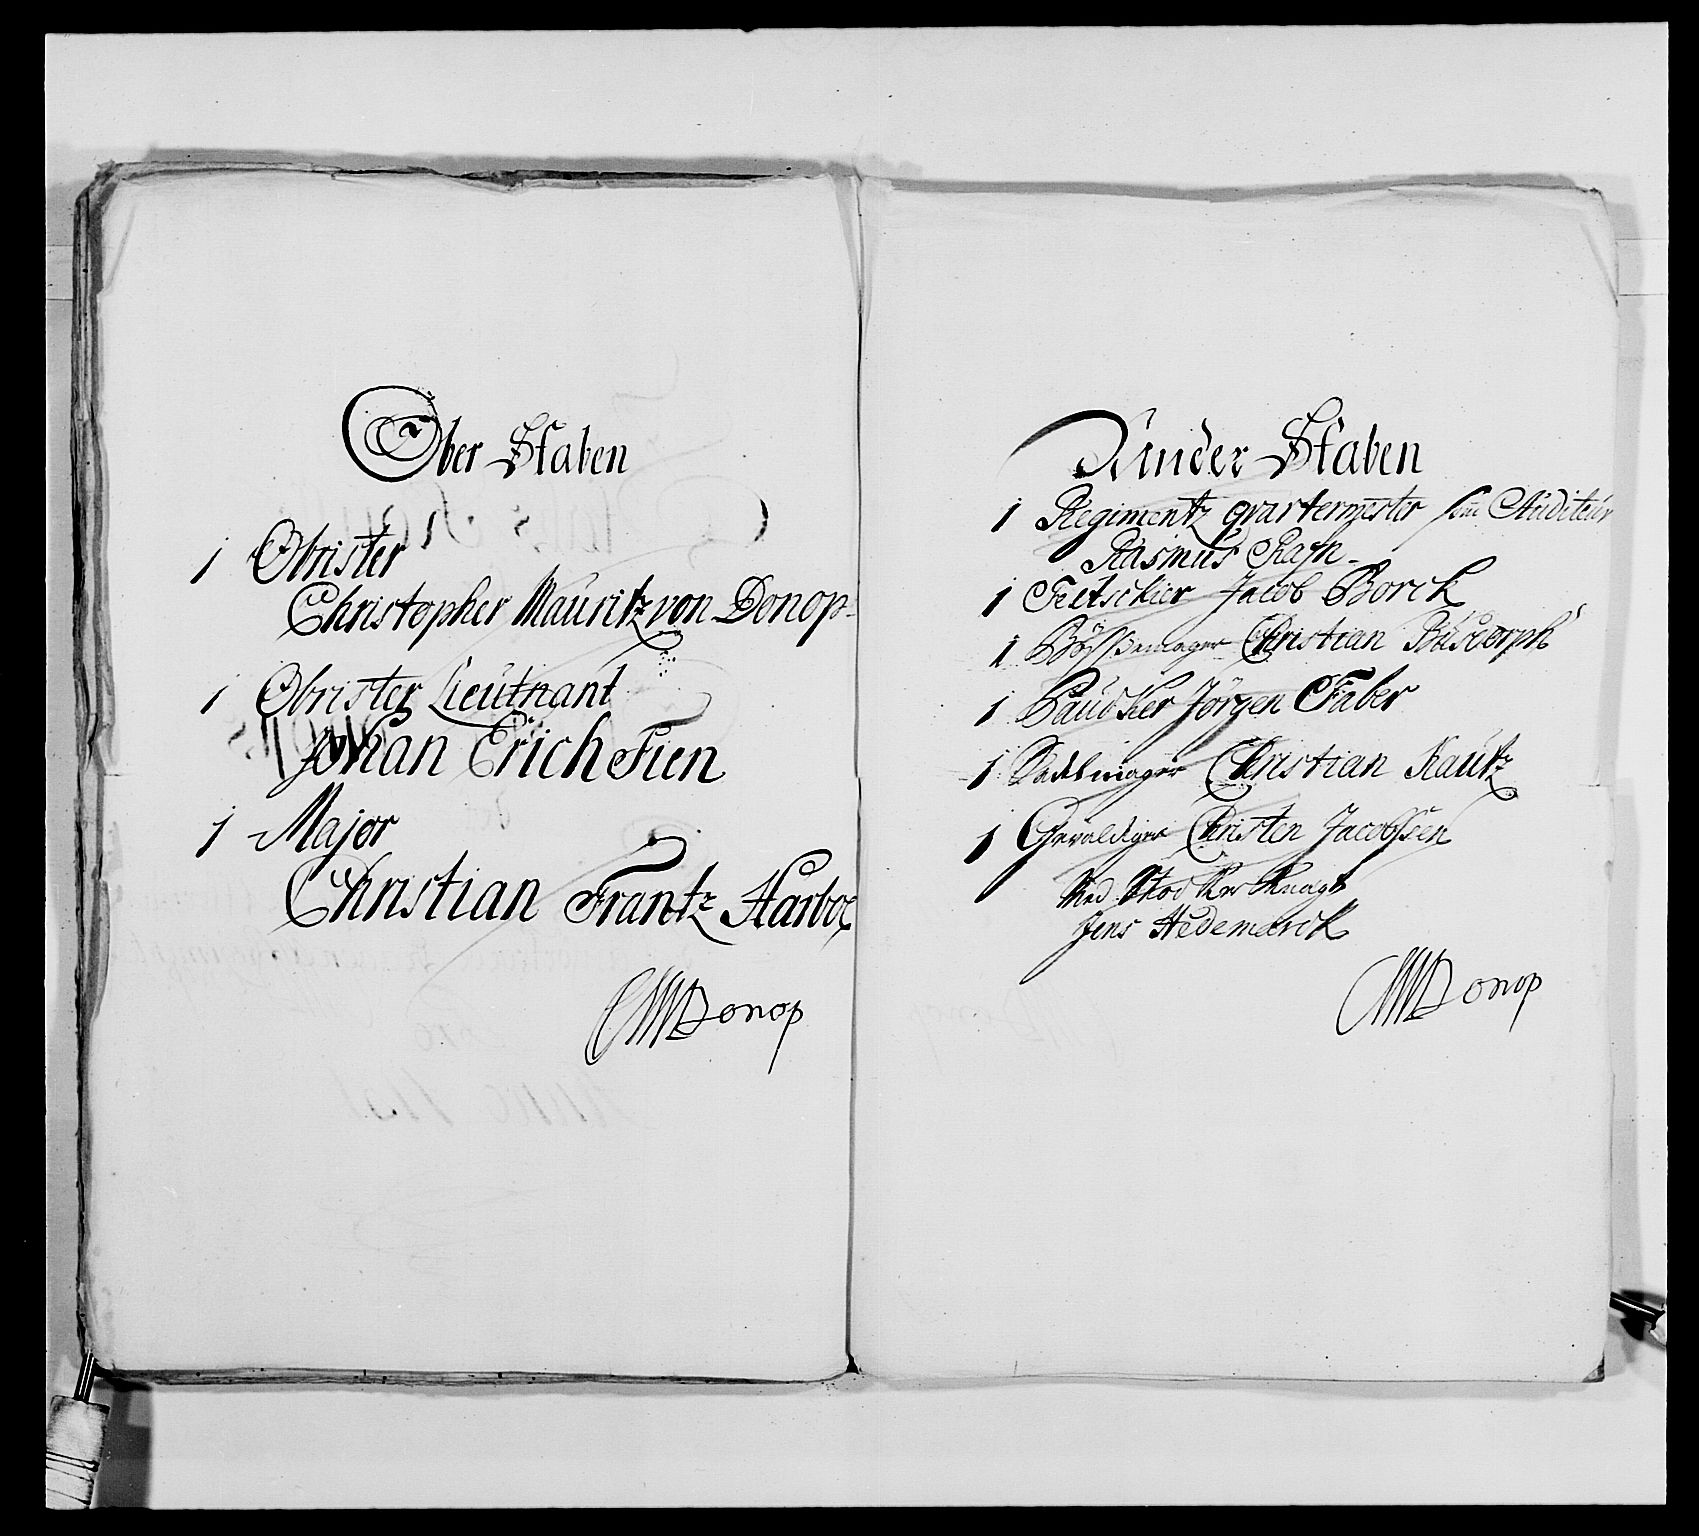 Ober Staben
1 Obrister
Christopher Mauritz von Donop
1 Obrister Lieutnant
Johan Erich Fien
1 Major
Christian Frantz Harboe
CMVDonop
Under Staben
1 Regimentz qvartermester som Auditeur
Rasmus Rafn
1 Feltskier Jacob Borck
1 Bössemager Christian Busdorph
1 Paudker Jørgen Faber
1 Sadelmager Christian Kautz
1 Gevaldiger Christen Jacobsen
Med Stocker Knegt
Jens Hedemarck
CMVDonop